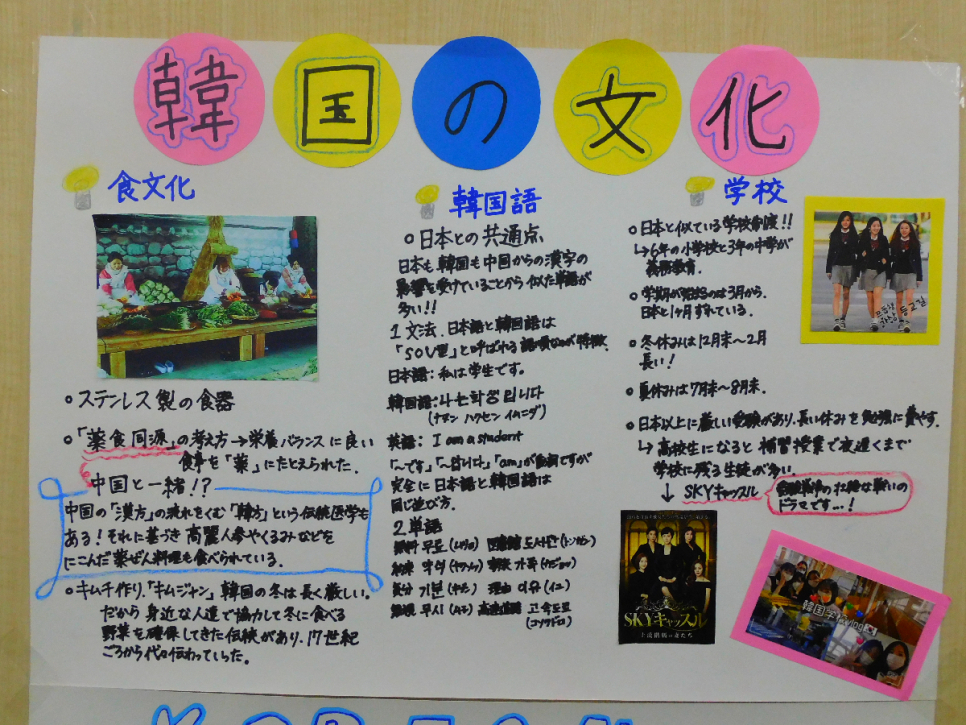 韓国の文化
食文化
ステンレス製の食器
「薬食同源」の考え方→栄養バランスに良い
食事を「薬」にたとえられた.
中国と一緒!?
中国の「漢方」の流れをくむ「韓方」という伝統医学も
ある!それに基づき高麗人参やくるみなどを
にこんだ薬ぜん料理も食べられている.
キムチ作り.「キムジャン」韓国の冬は長く厳しい.
だから身近な人達で協力して冬に食べる
野菜を確保してきた伝統があり.17世紀
ごろから代々伝わっていった.
韓国語
日本との共通点
日本も韓国も中国からの漢字の
影響を受けていることから似た単語が
多い!!
1 文法.日本語と韓国語は
「SOV型」と呼ばれる語順なのが特徴.
日本語:私は学生です。
韓国語:나는 학생 입니다
(ナヌン ハクセン イムニダ)
英語: I am a student
「~です」「~입니다」「am」が動詞ですが
完全に日本語と韓国語は
同じ並び方.
2 単語
無料 무료 (ムリョ) 図書館
約束 약속 (ヤクソク) 家族 가족 (カジョク)
気分 기분 (キブン) 理由 이유 (イユ)
無視 무시 (ムシ) 高速道路 고속도로
(コソクドロ)
学校
日本と似ている学校制度!!
↳6年の小学校と3年の中学が
義務教育.
学期が始まるのは3月から.
日本と1ヶ月ずれている.
冬休みは12月末~2月
長い!
夏休みは7月末~8月末.
日本以上に厳しい受験があり、長い休みを勉強に費やす.
↳高校生になると補習授業で夜遅くまで
学校に残る生徒が多い.
↓ SKYキャッスル
受験戦争の壮絶な戦いの
ドラマです…!
SKYキャッスル
上流階級の妻たち
vlog